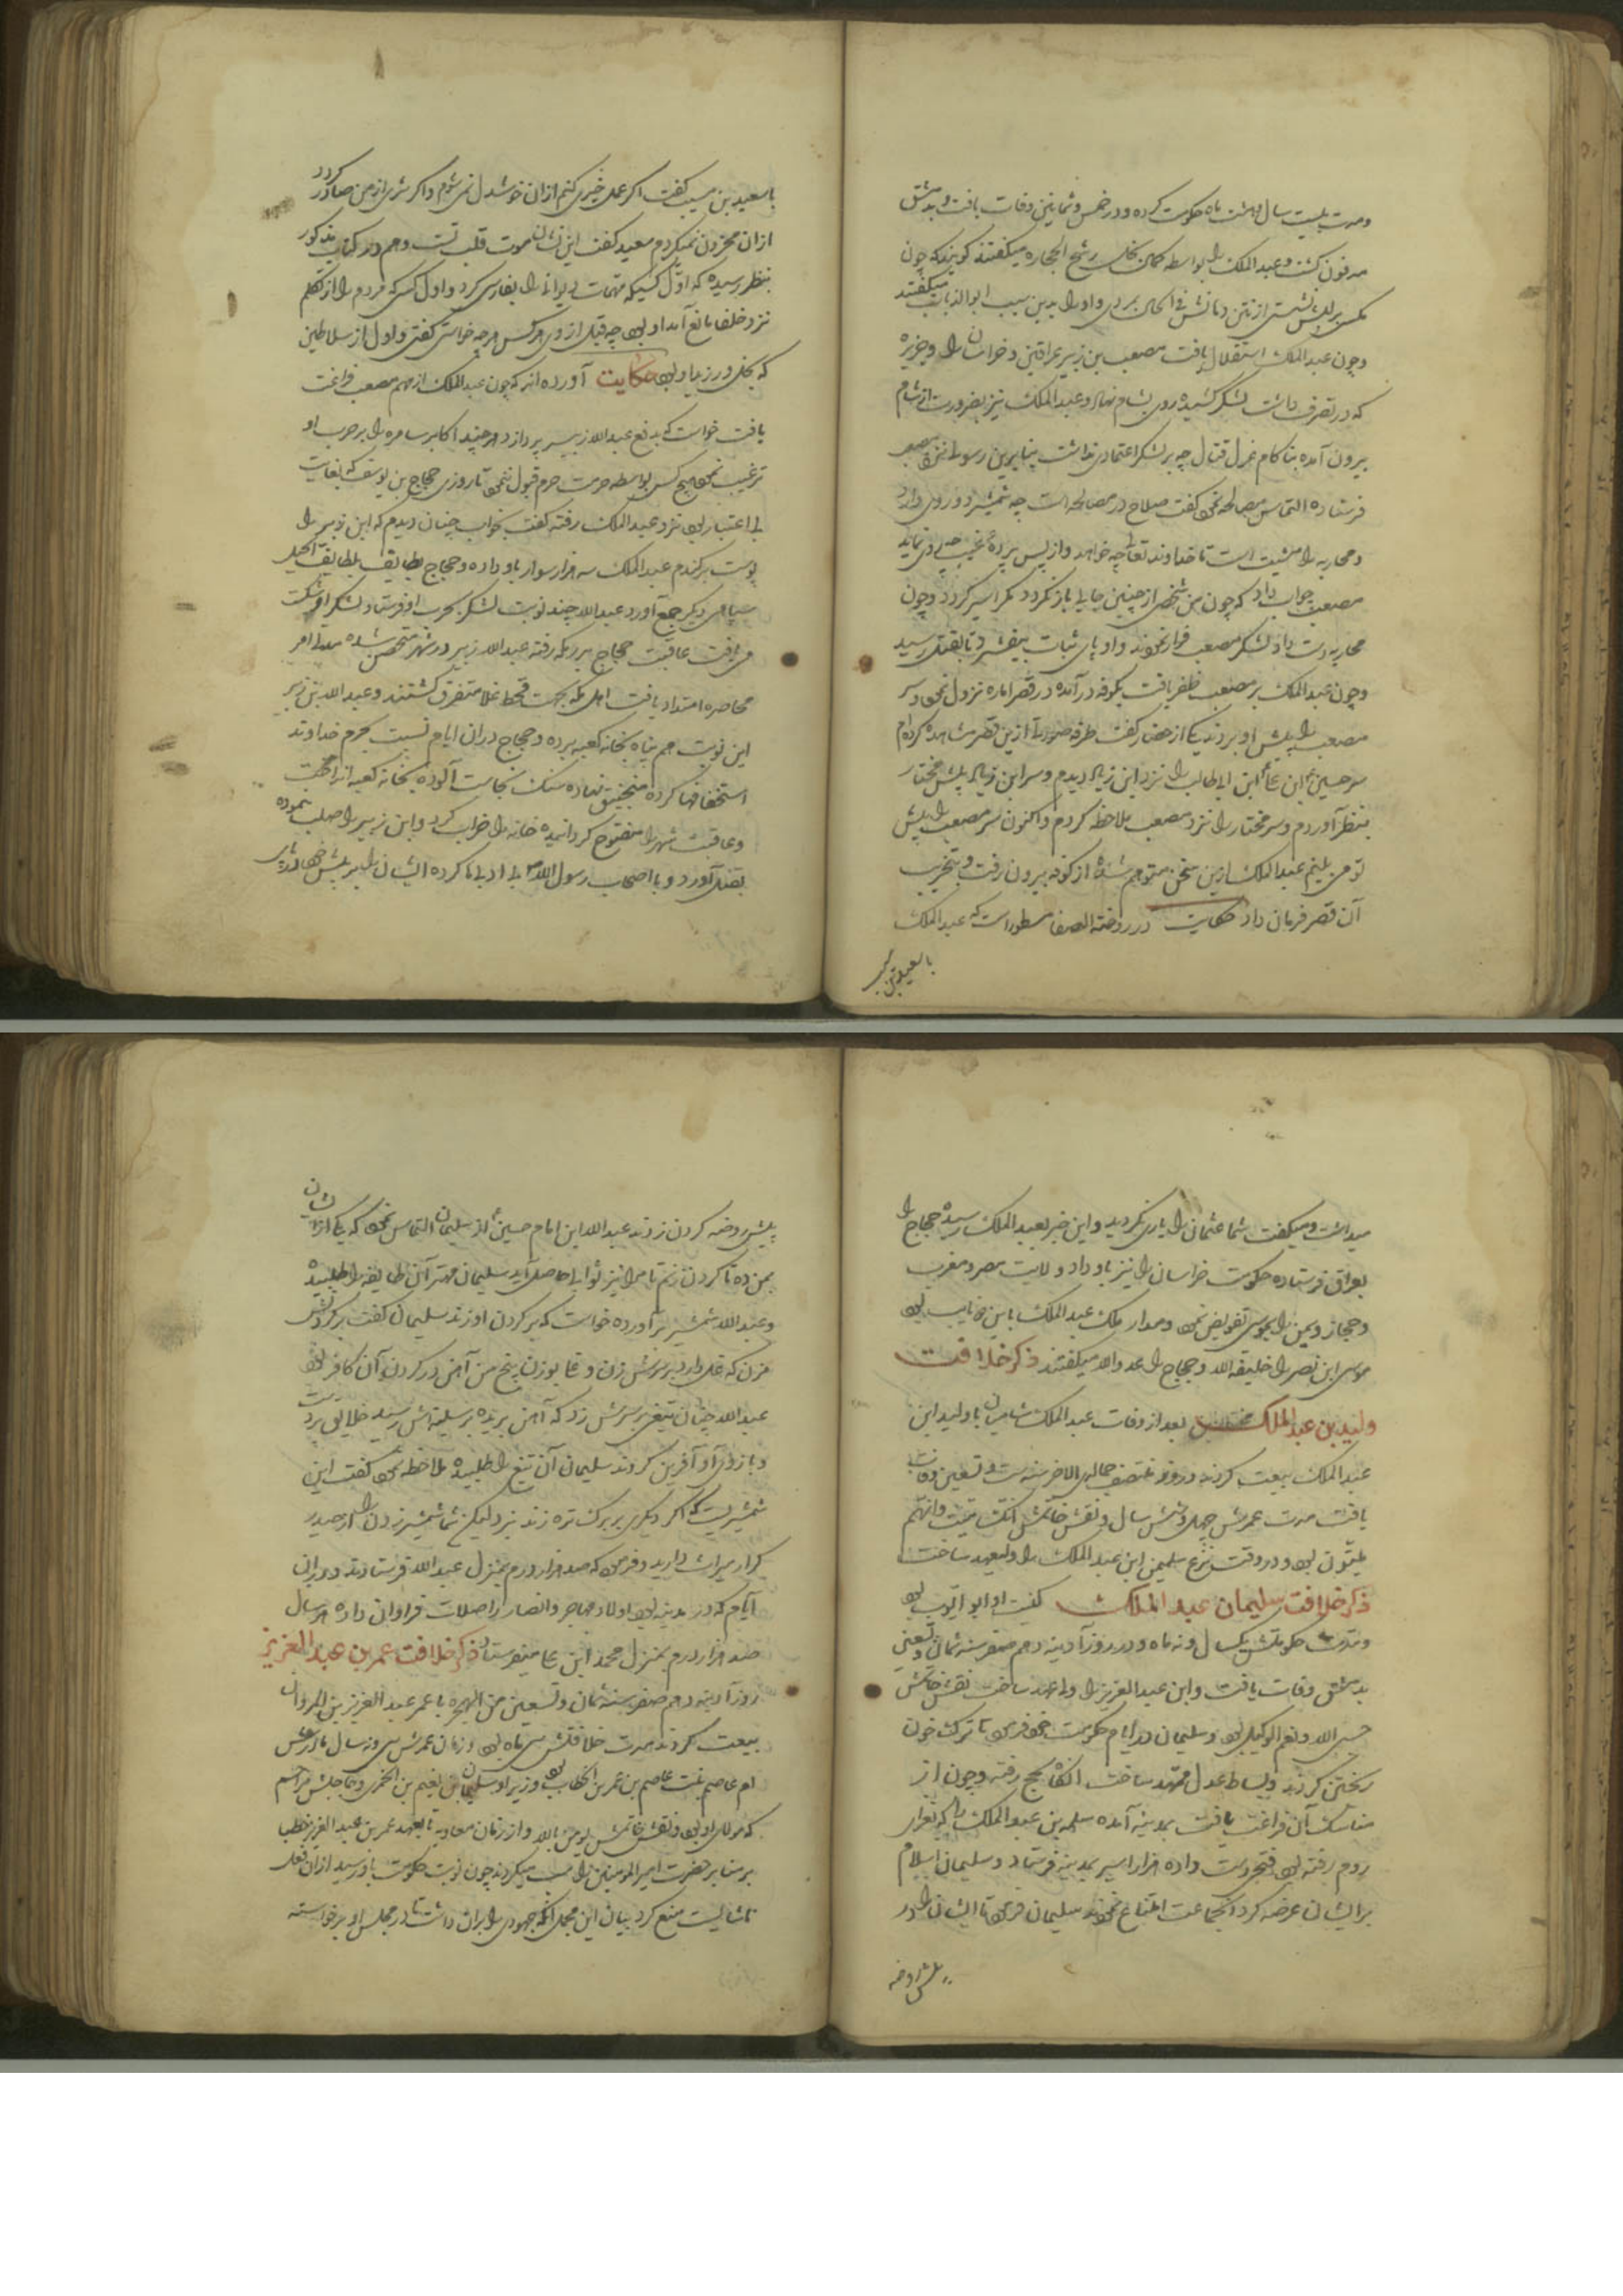 ومدت بیست سال و هشت ماه حکومت کرده و در خمس و ثمانین وفات یافت و بدمشق
مدفون گشت و عبدالملک را بواسطه کمال بخل رشح الحجاره میکفتند کویند که چون
مکس بر لبش نشستی از نتن دهانش فی الحال بمردی و او را بدین سبب ابوالذباب میکفتند
وچون عبدالملک استقلال یافت مصعب بن زبیر عراقین و خراسان را و جزیره
که در تصرف داشت لشکر کشیده روی بشام نهاد و عبدالملک نیز بضرورت از شام
بیرون آمده بناکام عزل قتال چه بر لشکر اعتمادی نداشت بنابرین رسول نزد مصعب
فرستاده التماس مصالحه نمود کفت صلاح در مصالحه است چه شمشیر دو روی دارد
و محاربه را مشیت است تا خداوند تعالی چه خواهد و از پس پرده غیب چه روی نماید
مصعب جواب داد که چون من شخصی از چنین جایها باز نکردد مکر اسیر کردد و چون
محاربه دست داد لشکر مصعب فرار نمودند و او پای ثبات بیفشرد تا بقتل رسید
وچون عبدالملک بر مصعب ظفر یافت بکوفه در آمده در قصر اماره نزول نمود و سر
مصعب را پیش او بردند یکی از حضار کفت طرفه صورتی ازین قصر مشاهده کرده ام
سر حسین ابن علی ابن ابی طالب را نزد ابن زیاد دیدم و سر ابن زیاد پیش مختار
بنظر آوردم و سر مختار را نزد مصعب ملاحظه کردم و اکنون سر مصعب را پیش
تو می بینم عبدالملک ازین سخن متوهم شده از کوفه بیرون رفت و بتخریب
آن قصر فرمان داد حکایت در روضة الصفا مسطور است که عبدالملک
با سعید بن
با سعید بن مسیب کفت اکر عمل خیری کنم ازان خوشدل نمی شوم و اکر شری از من صادر کردد
ازان محزون نمیکردم سعید کفت این نشان موت قلب تست و هم در کتاب مذکور
بنظر رسیده که اول کسیکه مهمات دیوانی را بفارسی کرد و اول کسی که مردم را از تکلم
نزد خلفا مانع آمد او بود چه قبل از وی هر کس هر چه خواستی کفتی و اول از سلاطین
که بخل ورزید او بود حکایت آورده اند که چون عبدالملک از مهم مصعب فراغت
یافت خواست که بدفع عبدالله زبیر پردازد هر چند اکابر سامره را بر حرب او
ترغیب نمود هیچ کس بواسطه حرمت حرم قبول ننمود تا روزی حجاج بن یوسف که بغایت
بی اعتبار بود نزد عبدالملک رفته کفت بخواب چنان دیدم که ابن زبیر را
پوست برکندم عبدالملک سه هزار سوار باو داده و حجاج بطایف بلطایف الحیل
سپاهی دیکر جمع آورد عبدالله چند نوبت لشکر بحرب او فرستاد لشکر او شکست
می یافت عاقبت حجاج بر در مکه رفته عبدالله زبیر در شهر متحصن شده مدت امر
محاصره امتداد یافت اهل مکه بجهت قحط غلا متفرق کشتند و عبدالله بن زبیر
این نوبت هم پناه بخانه کعبه برده و حجاج دران ایام نسبت بحرم خداوند
استخفافها کرده منجنیق نهاده سنک نجاست آلوده بخانه کعبه انداخت
و عاقبت شهر را مفتوح کردانیده خانه را خراب کرد و ابن زبیر را صلب نموده
بقتل آورد و با اصحاب رسول الله بی ادبیها کرده ایشان را بر پیش خود
میداشت و میکفت شما عثمان را یاری نکردید و این خبر بعبدالملک رسیده حجاج را
بعراق فرستاده حکومت خراسان را نیز باو داد و ولایت مصر و مغرب
و حجاز و یمن را بموسی تفویض نمود و مدار ملک عبدالملک باین دو نایب بود
موسی ابن نصر را خلیفه الله و حجاج را عدو الله میکفتند ذکر خلافت
ولید بن عبدالملک بعد از وفات عبدالملک شامیان با ولید ابن
عبدالملک بیعت کردند و در منتصف جمادی الاخر سنه ست و تسعین وفات
یافت مدت عمرش چهل و شش سال و نقش خاتمش انک میت و انهم
میتون بود و در وقت نزع سلیمن ابن عبدالملک را ولیعهد ساخت
ذکر خلافت سلیمان عبد الملک کنیت او ابو ایوب بود
و مدت حکومتش یکسال و نه ماه و در روز آدینه دهم صفر سنه ثمان و تسعین
بدمشق وفات یافت و ابن عبدالعزیز را ولی عهد ساخت نقش خاتمش
حسبی الله و نعم الوکیل بود و سلیمان در ایام حکومت خود فرمود تا ترک خون
ریختن کردند و بساط عدل ممهد ساخت آنکاه بحج رفته و چون از
مناسک آن فراغت یافت بمدینه آمده سلمه بن عبدالملک را که بغزای
روم رفته بود فتح دست داده هزار اسیر بمدینه فرستاد و سلیمان اسلام
بر ایشان عرضه کرد آنجماعت امتناع نمودند سلیمان فرمود تا ایشان را در
پیش روضه
پیش روضه کردن زدند عبدالله ابن امام حسین از سلیمان التماس نمود که یکی از ایشان
بمن ده تا کردن زنم تا مرا نیز ثوابی حاصل آید سلیمان مهتر آن طایفه را طلبیده
و عبدالله شمشیر برآورده خواست که بر کردن او زند سلیمان کفت بر کردنش
مزن که غل دارد بر سرش زن و غل بوزن پنج من آهن در کردن آن کافر بود
عبدالله چنان تیغی بر سرش زد که آهن بریده بر سینه اش رسید خلایق بر دست
و بازوی او آفرین کردند سلیمان آن تیغ را طلبیده ملاحظه نمود کفت این
شمشیریست که اکر دیکری بر برک تره زند نبرد لیکن شما شمشیر زدن را از حیدر
کرار میراث دارید و فرمود که صد هزار درم بمنزل عبدالله فرستادند و دران
ایام که در مدینه بود اولاد مهاجر و انصار را صلات فراوان داده هر سال
صد هزار درم بمنزل محمد ابن علی میفرستاد ذکر خلافت عمر بن عبد العزیز
روز آدینه دهم صفر سنه ثمان و تسعین من الهجره با عمر عبدالعزیز بن المروان
بیعت کردند مدت خلافتش سی ماه بود و زمان عمرش سی و نه سال مادرش
ام عاصم بنت عاصم بن عمر بن الخطاب بود وزیر او سلیمان بن نعیم بن الحمری و حاجبش مزاحم
که مولای او بود و نقش خاتمش یومن بالله و از زمان معاویه تا بعهد عمر بن عبدالعزیز خطبا
بر منابر حضرت امیر المومنین را سب میکردند چون نوبت حکومت باو رسید ازان فعل
ناشایست منع کرد بیان این مجمل آنکه جهودی را بران داشت تا در مجلس او برخواسته